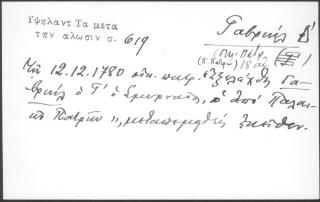 Υψηλαντ Τα μετα
την αλωσιν σ. 619
Γαβριήλ Δ'
(οικ. πατρ.
(π. Πατρ.) 18 αἰ.
Τῇ 12.12.1780 οἰκ. πατρ. ἐξελέχθη Γα-
βριήλ ὁ Γ' ὁ Σμυρναῖος, ὁ ἀπό Παλαι-
ῶν Πατρῶν", μεταπεμφθείς ἐκεῖθεν.